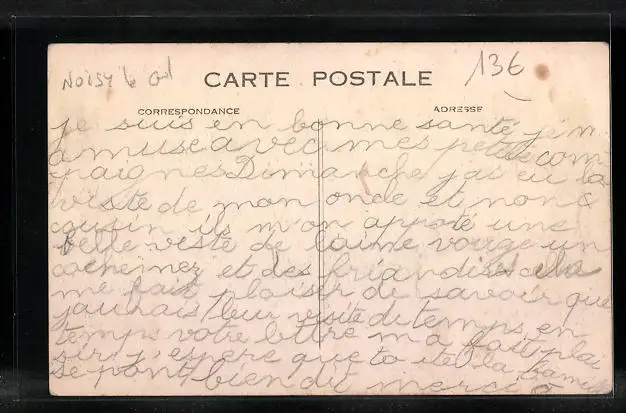 Noisy le Gd
136
CARTE POSTALE
CORRESPONDANCE
ADRESSE
je suis en bonne santé, je m
amuse avec mes petites com
paignes Dimanche j'ai eu la
visite de mon oncle et mon
cousin ils m'on apporté une
belle veste de laine rouge un
cachemez et des friandises cela
me fait plaisir de savoir que
j'aurais leur visite de temps en
temps votre lettre m'a fait plai
sir j'espere que to la famille
se pont bien dit merci